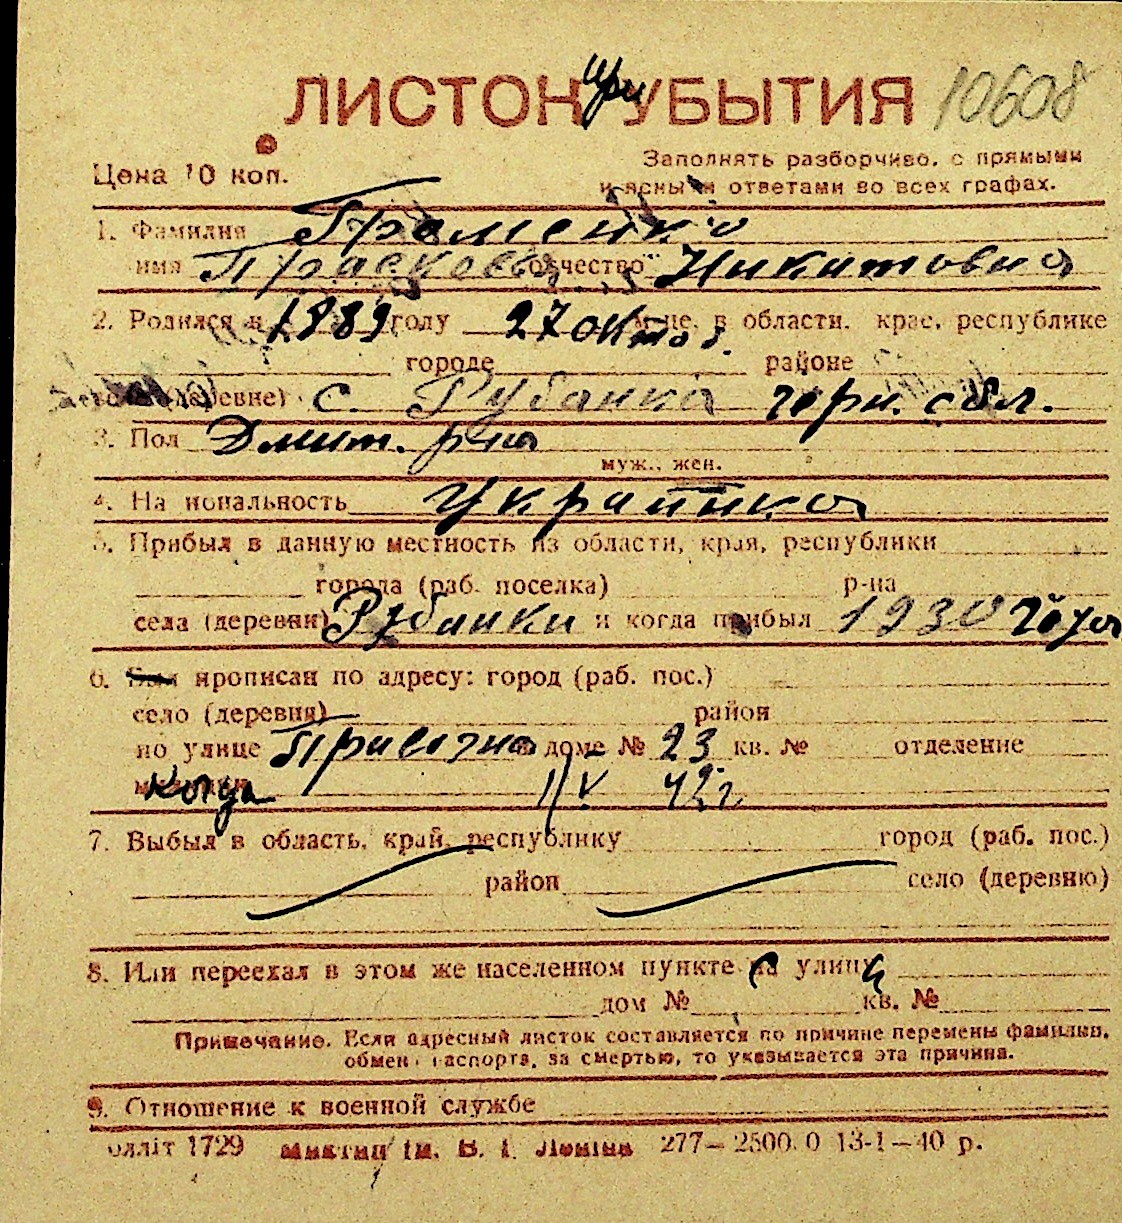 ЛИСТОК при УБЫТИЯ 10608
Цена 10 коп.
Заполнять разборчиво, с прямыми
и ясными ответами во всех графах.
1. Фамилия Громенко
имя Прасковья отчество Никитовна
2. Родился в 1889 году 27 октяб. м-це, в области, крае, республике
городе районе
селе (деревне) с. Рубанка черн. обл.
3. Пол Дмит. р-на
муж., жен.
4. Национальность Украинка
5. Прибыл в данную местность из области, края, республики
города (раб. поселка) р-на
села (деревни) Рубанки и когда прибыл 1930 года
6. прописан по адресу: город (раб. пос.)
село (деревня) район
по улице в доме № 23 кв. № отделение
Когда 1/V 42 г.
7. Выбыл в область, край, республику город (раб. пос.)
район село (деревню)
8. Или переехал в этом же населенном пункте с улицы
дом № кв. №
Примечание. Если адресный листок составляется по причине перемены фамилии,
обмен паспорта, за смертью, то указывается эта причина.
9. Отношение к военной службе
облліт 1729 ім. В. І. Леніна 277—2500.0 13-1—40 р.